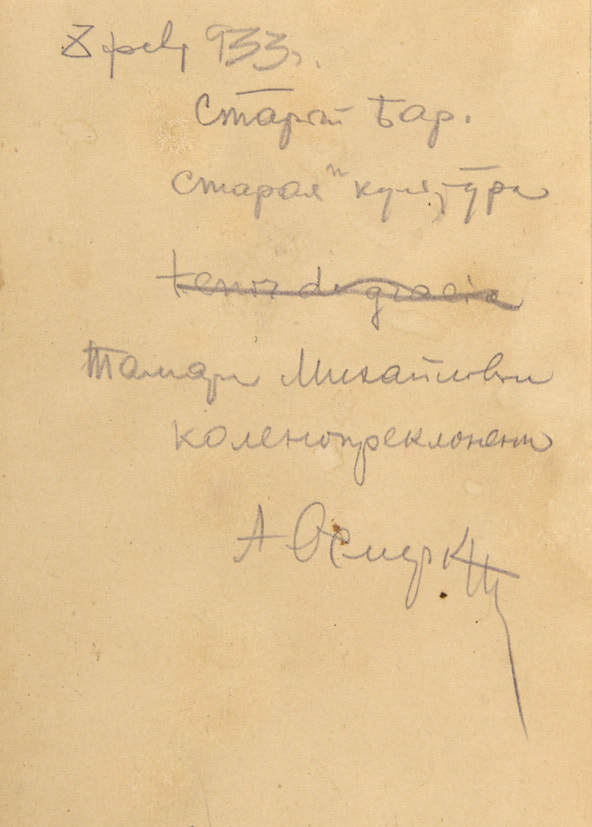 8 фев 933 г.
Старый Бар.
старая культура
Тамаре Михайловне
коленопреклоненно
А Осмеркин